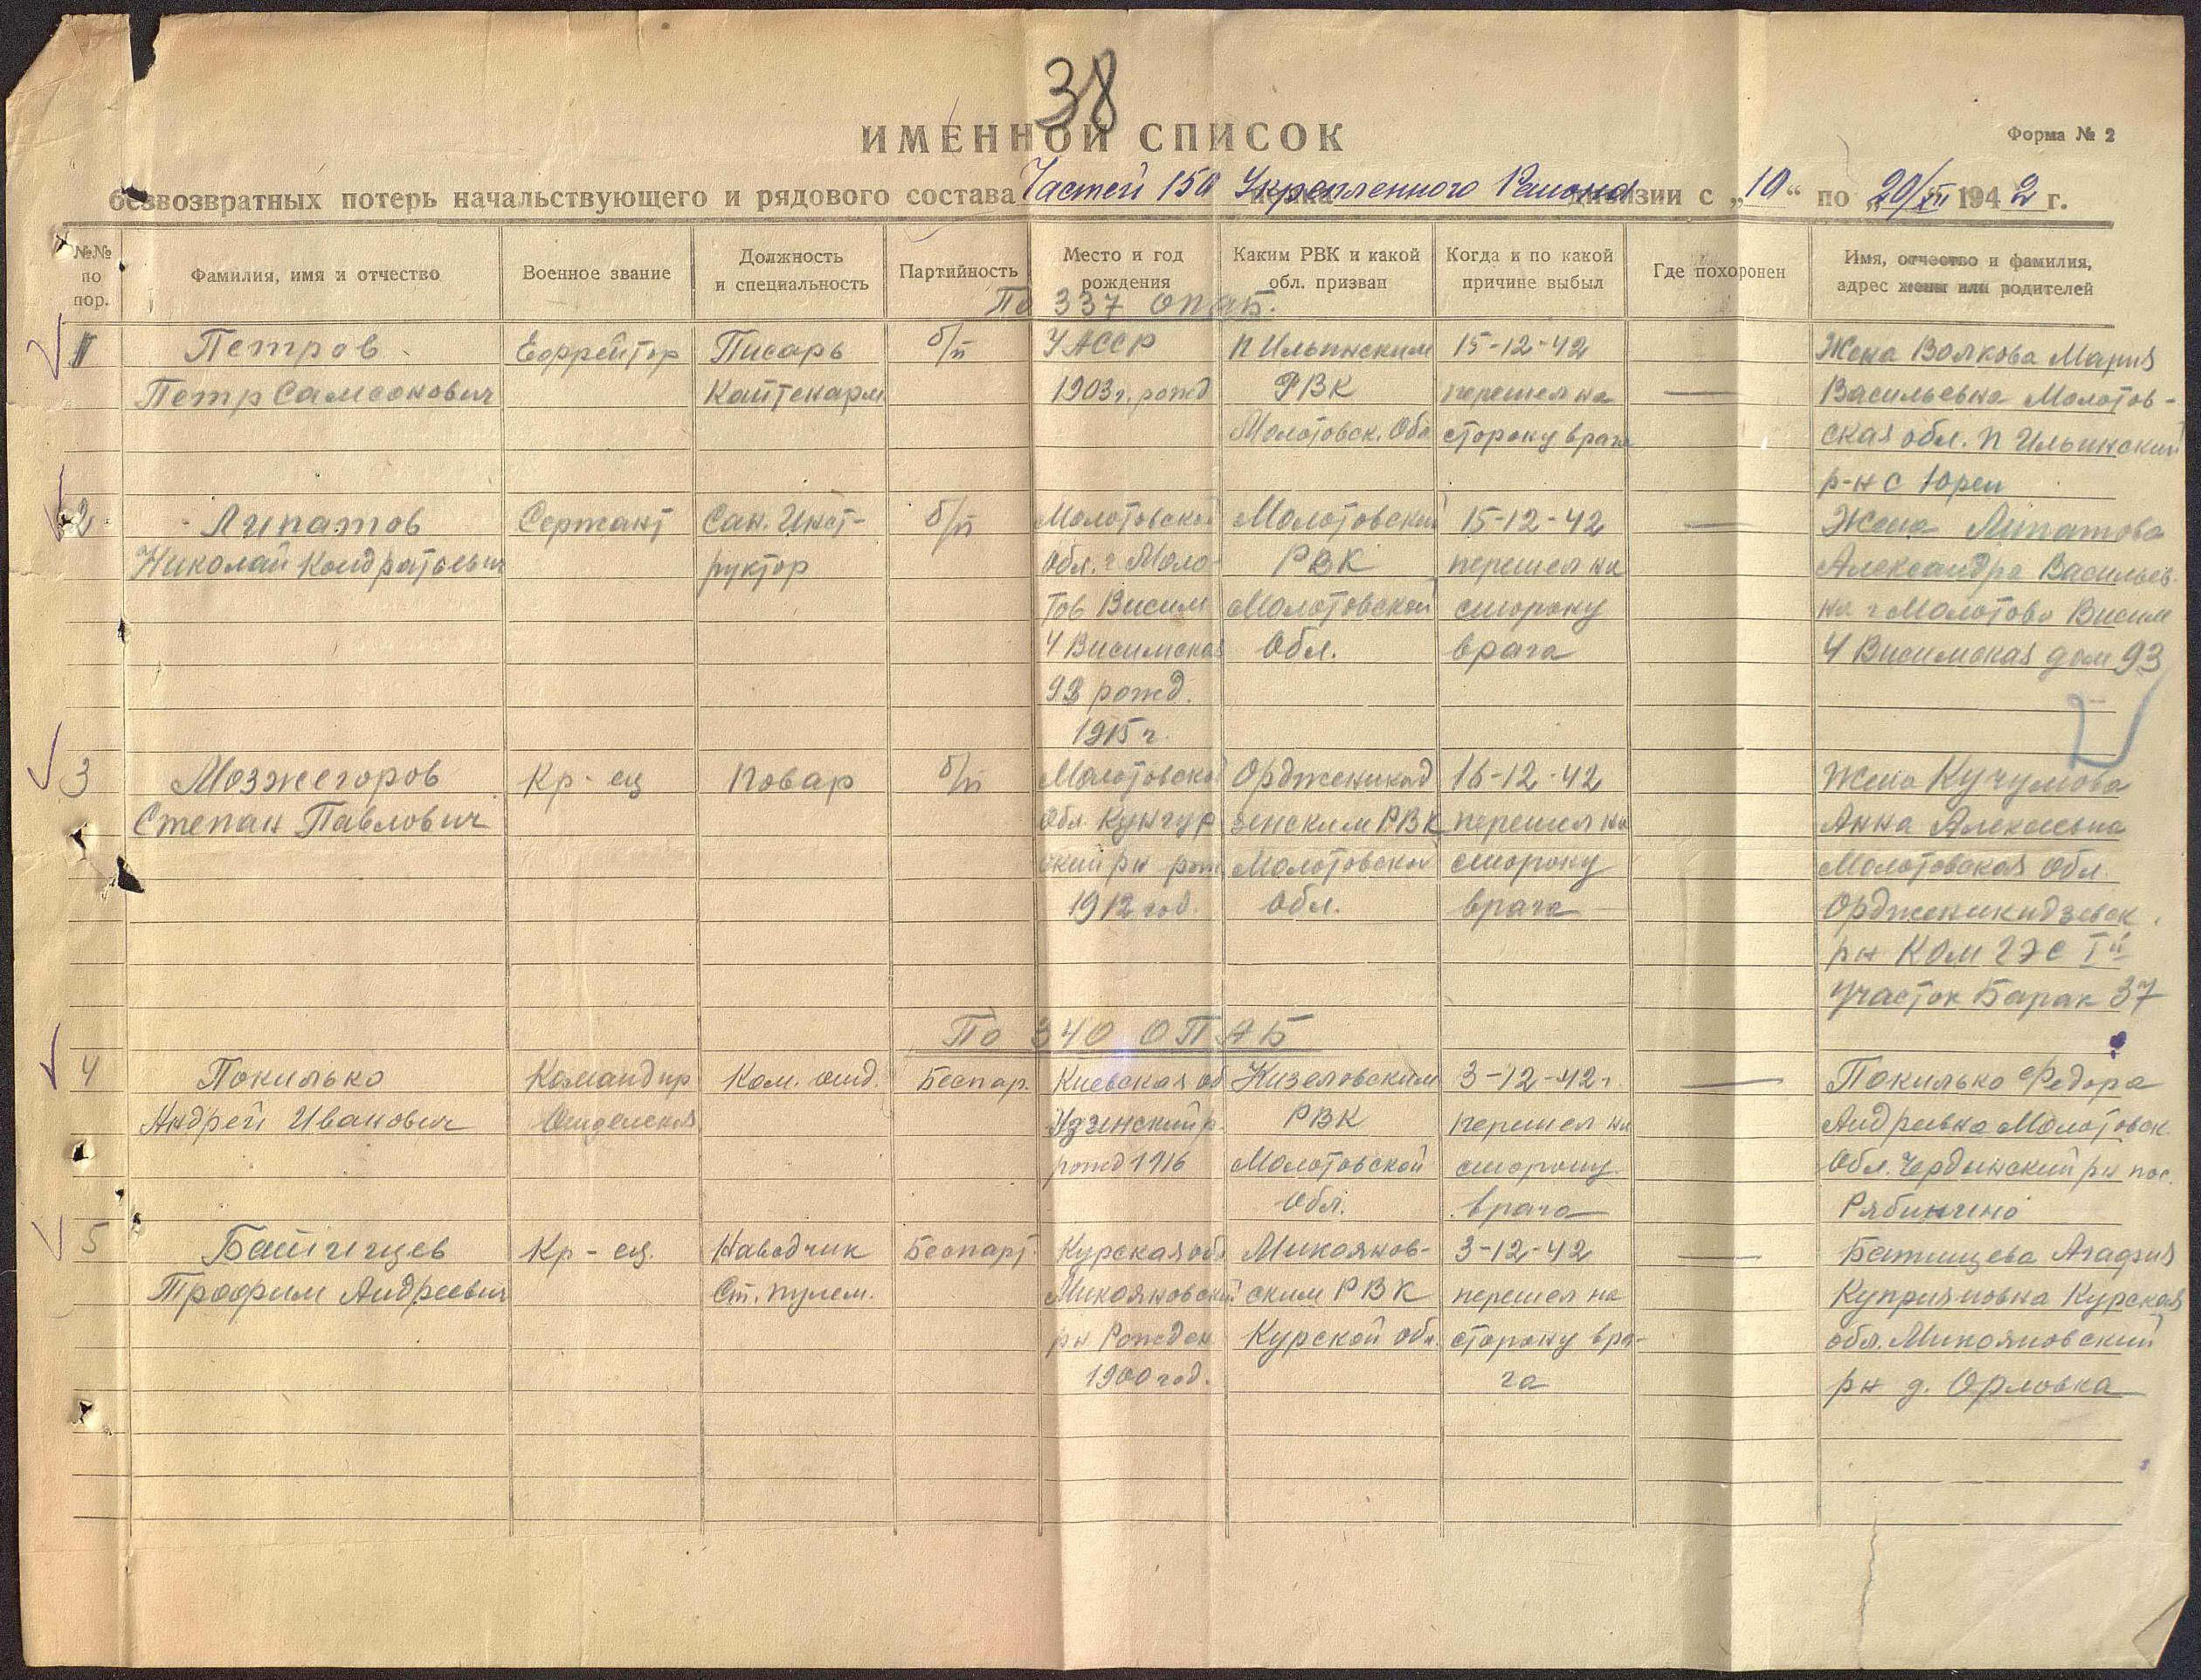 38
ИМЕННОЙ СПИСОК
Форма № 2
безвозвратных потерь начальствующего и рядового состава Частей 150 Укрепленного Района дивизии с „10“ по „20/XII 1942 г.
№№ по пор.
Фамилия, имя и отчество
Военное звание
Должность и специальность
Партийность
Место и год рождения
Каким РВК и какой обл. призван
Когда и по какой причине выбыл
Где похоронен
Имя, отчество и фамилия, адрес жены или родителей
По 337 ОПАБ.
1 Петров Ефрейтор Писарь б/п УАССР п Ильинским 15-12-42 Жена Волкова Мария
Петр Самсонович 1903г. рожд РВК перешел на — Васильевна Молотов-
Молотовск. Обл сторону врага ская обл. п Ильинский
р-н с
2 Липатов Сержант Сан. Инст- б/п Молотовской Молотовский 15-12-42 — Жена Липатова
Николай Кондратьевич руктор Обл. г Моло- РВК перешел на Александра Васильев-
тов Висим Молотовской сторону на г Молотово Висим
4 Висимская Обл. врага 4 Висимская дом 93
93 рожд.
1915 г.
3 Мозжегоров Кр-ец Повар б/п Молотовской Орджоникид 16-12-42 Жена Кучумова
Степан Павлович Обл. Кунгур зенским РВК перешел на Анна Алексеевна
ский рн рож Молотовской сторону Молотовская Обл.
1912 год. Обл. врага Орджоникидзевск.
рн Кам ГЭС I й
участок Барак 37
По 340 ОПАБ
4 Покилько Командир Ком. отд. Беспар. Киевская об Кизеловским 3-12-42г. — Покилько Федора
Андрей Иванович Отделения Узинский р. РВК перешел на Андреевна Молотовск.
рожд 1916 Молотовской сторону Обл. Чердынский рн пос.
Обл. врага Рябинино
5 Батищев Кр-ец. Наводчик Беспарт. Курская обл Микоянов- 3-12-42 — Батищева Агафия
Трофим Андреевич Ст. пулем. Микояновский ским РВК перешел на Куприяновна Курская
рн Рожден Курской обл. сторону вра- обл. Микояновский
1900 год. га рн д. Орловка